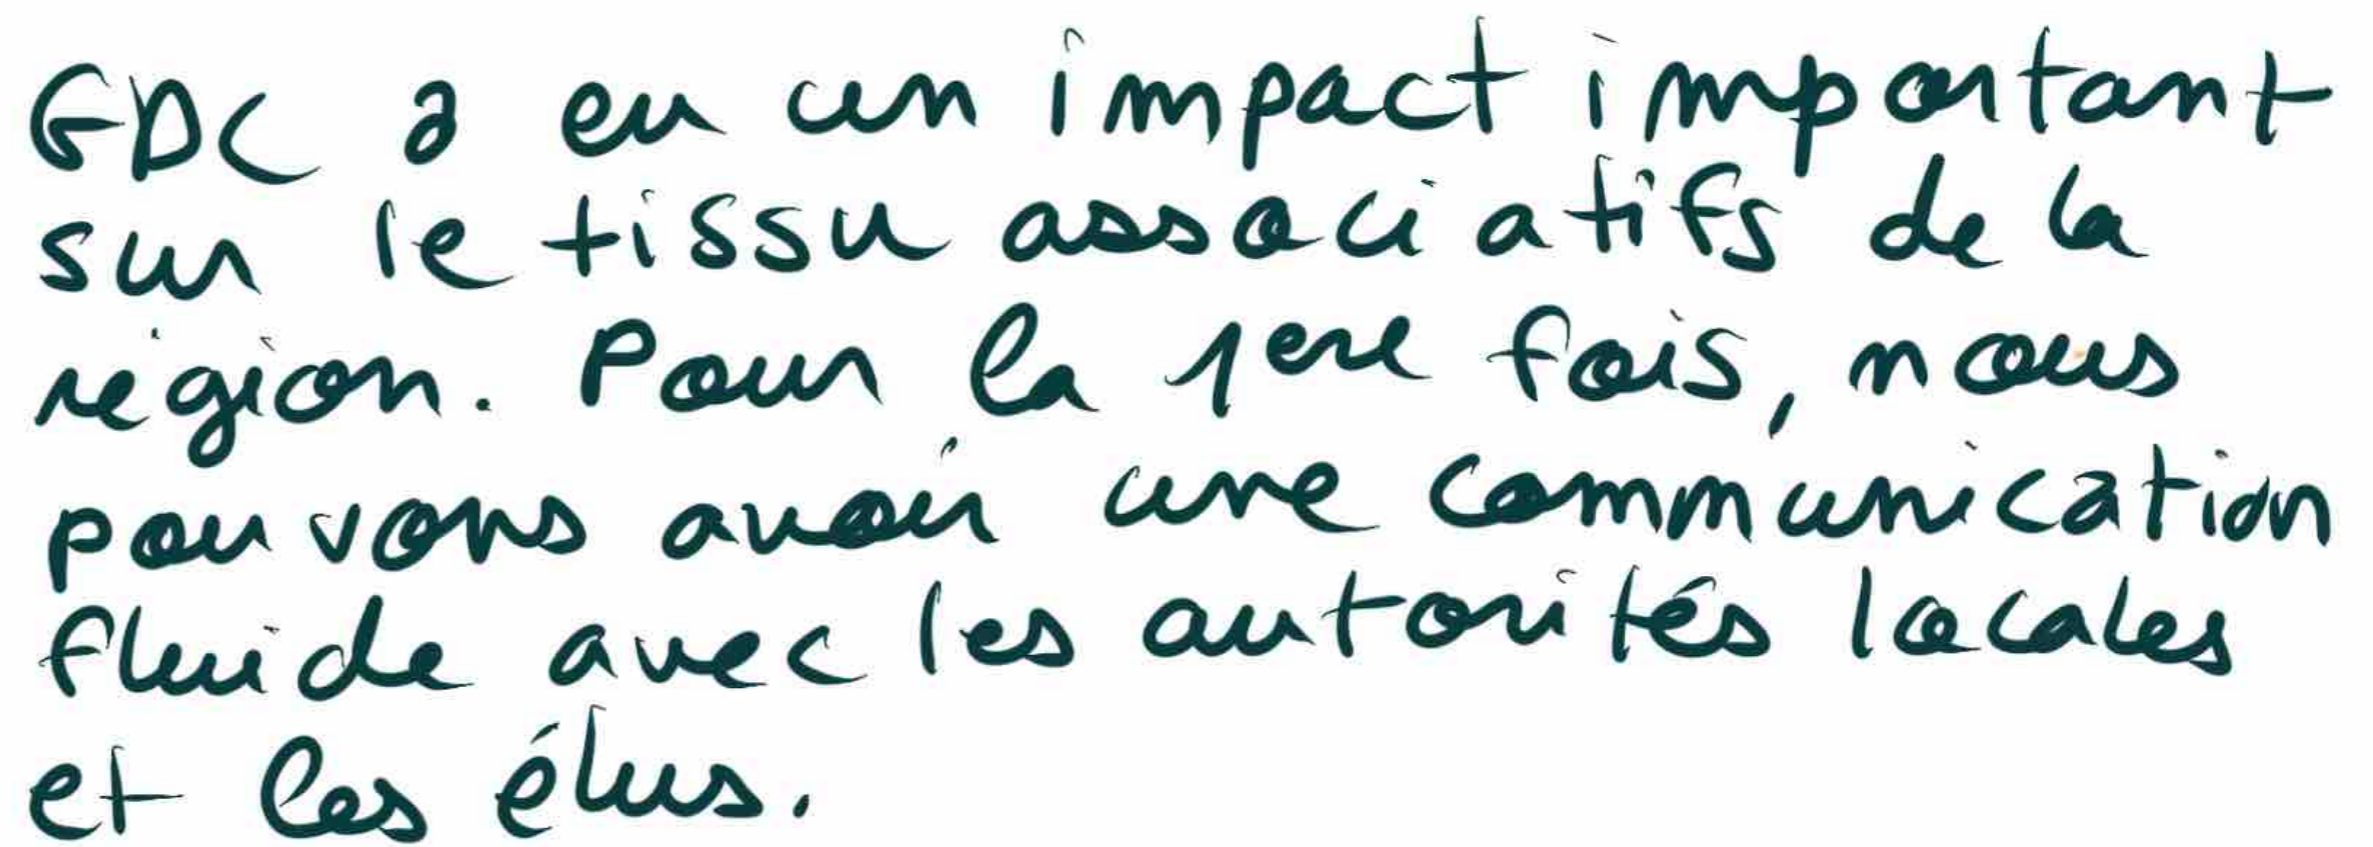 GDC a eu un impact important
sur le tissu associatifs de la
région. Pour la 1ere fois, nous
pouvons avoir une communication
fluide avec les autorités locales
et les élus.